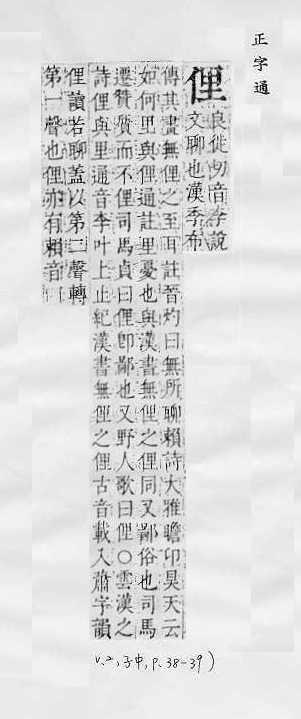 正字通
俚
良徙切音李說
文聊也漢季布
傳其畫無俚之至耳註晉灼曰無所聊賴詩大雅瞻卬昊天云
如何里與俚通註里憂也與漢書無俚之俚同又鄙俗也司馬
遷贊質而不俚司馬貞曰俚卽鄙也又野人歌曰俚〇雲漢之
詩俚與里通音李叶上止紀漢書無俚之俚古音載入蕭字韻
俚讀若聊蓋以第二聲轉
第一聲也俚亦有賴音
v.2, 子中, p.38-39)